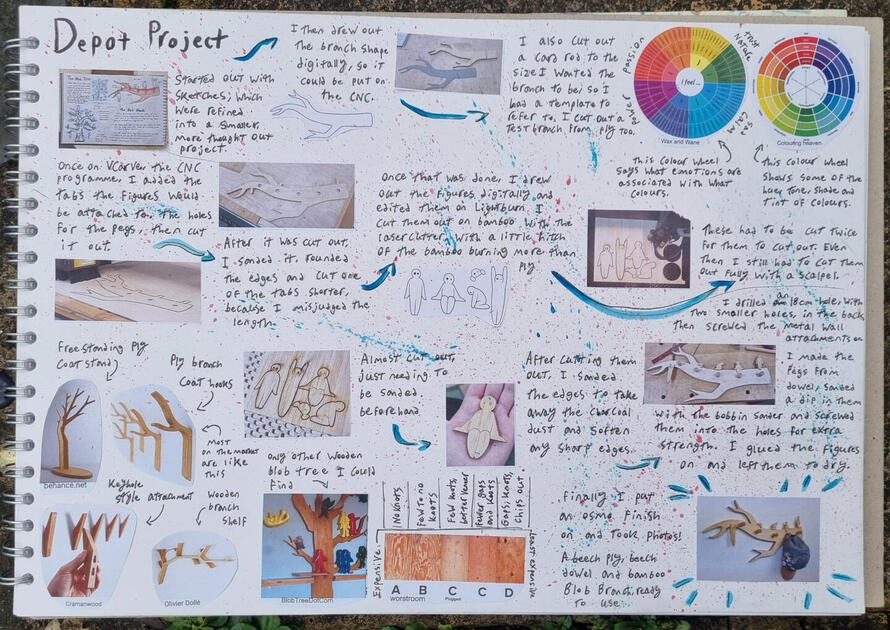 Depot Project
Started out with
sketches, which
were refined
into a smaller,
more thought out
project.
I then drew out
the branch shape
digitally, so it
could be put on
the CNC.
I also cut out
a card rod to the
size I wanted the
branch to be, so I
had a template to
refer to. I cut out a
test branch from ply too.
passion
I feel...
Wax and Wane
Trust
Nature
Calm
Colouring heaven
this colour wheel
says what emotions are
associated with what
colours.
this colour wheel
shows some of the
hue, tone, shade and
tint of colours.
Once on VCarve, the CNC
programme, I added the
tabs the figures would
be attached to, the holes
for the pegs, then cut
it out.
After it was cut out,
I sanded it, rounded
the edges and cut one
of the tabs shorter,
because I misjudged the
length.
Once that was done, I drew
out the figures digitally and
edited them on Lightburn. I
cut them out on bamboo with the
laser cutter, with a little hitch
of the bamboo burning more than
ply
These had to be cut twice
for them to cut out. Even
then I still had to cut them
out fully with a scalpel.
I drilled an 18cm hole, with
two smaller holes, in the back
then screwed the metal wall
attachments on
Freestanding ply
coat stand
behance.net
Ply branch
coat hooks
most
on the market
are like
this
Keyhole
style attachment
Cramanwood
Wooden
branch
shelf
Olivier Dollé
Almost cut out,
just needing to
be sanded
beforehand.
only other wooden
blob tree I could
find
BlobTreeDotCom
Expensive
No knots
Few to no
knots
Few knots,
better veneer
Fewer gaps
and knots
Gaps, knots,
chips out
Least expensive
A B C C D
Plugged
worstroom
After cutting them
out, I sanded
the edges to take
away the charcoal
dust and soften
any sharp edges.
I made the
pegs from
dowel, sanded
a dip in them
with the bobbin sander and screwed
them into the holes for extra
strength. I glued the figures
on and left them to dry.
Finally I put
an osmo finish
on and took photos!
A beech ply, beech
dowel and bamboo
Blob Branch, ready
to use.